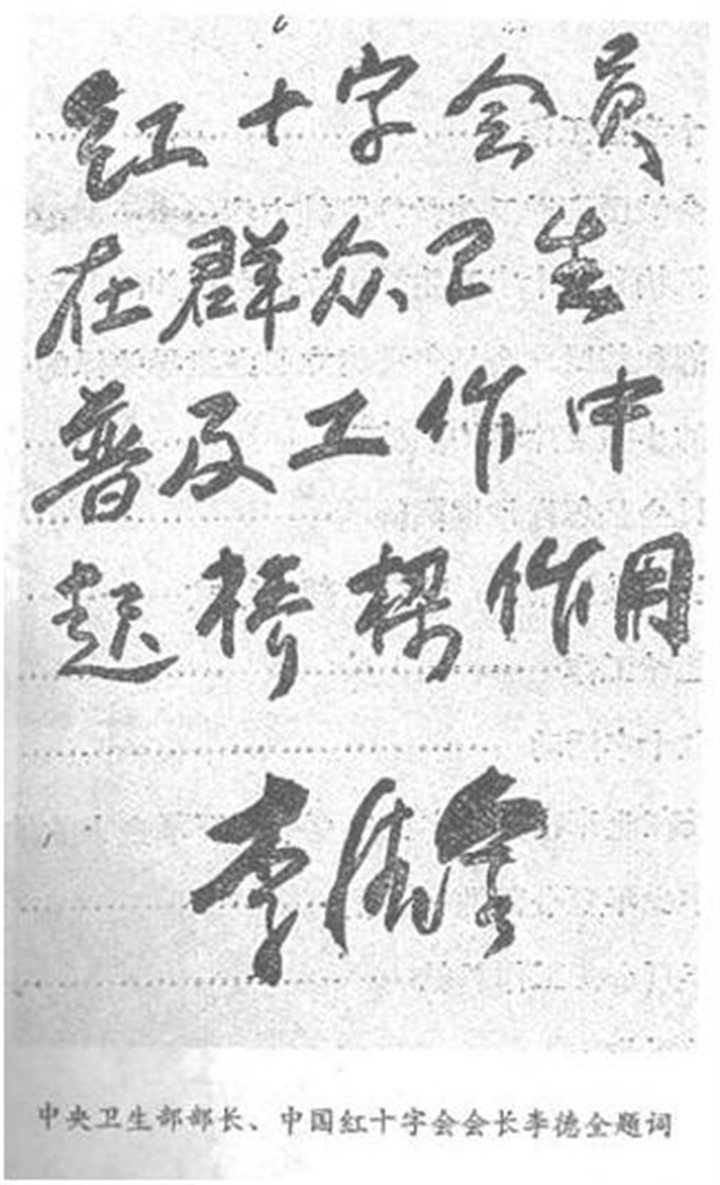 红十字会员
在群众卫生
普及工作中
起桥梁作用
李德全
中央卫生部部长、中国红十字会会长李德全题词